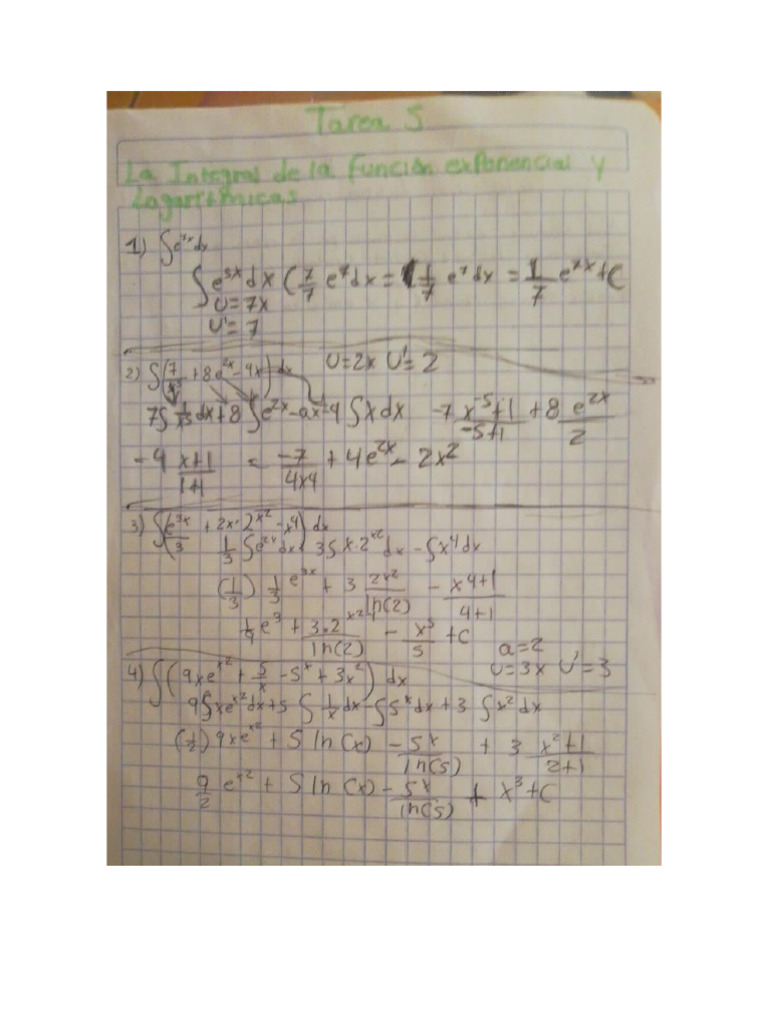 Tarea 5
La Integral de la función exponencial y
Logarítmicas
1) ∫e^7x dx
∫e^5x dx (7/7 e^7 dx = 1/7 e^x dx = 1/7 e^7x + C
U = 7x
U' = 7
2) ∫(7/x^5 + 8e^2x - 4x) dx U = 2x U' = 2
7∫ 1/x^5 dx + 8 ∫e^2x - ax - 4 ∫x dx - 7 x^-5+1/-5+1 + 8 e^2x/2
- 4 x+1/1+1 = -7/4x4 + 4e^2x - 2x^2
3) ∫(e^3x/3 + 2x · 2^x2 - x^4) dx
1/3 ∫e^2x dx 3∫x · 2^x2 dx - ∫x^4 dx
(1/3) 1/3 e^3x + 3 2x^2/ln(2) - x^4+1/4+1
1/9 e^3 + 3·2^x2/ln(2) - x^5/5 + C
a = 2
U = 3x U' = 3
4) ∫(9xe^x2 + 5/x - 5^x + 3x^2) dx
9∫xe^x2 dx + 5 ∫ 1/x dx - ∫5^x dx + 3 ∫x^2 dx
(1/2) 9xe^x2 + 5 ln(x) - 5x/ln(5) + 3 x^2+1/2+1
9/2 e^x2 + 5 ln(x) - 5x/ln(5) + x^3 + C